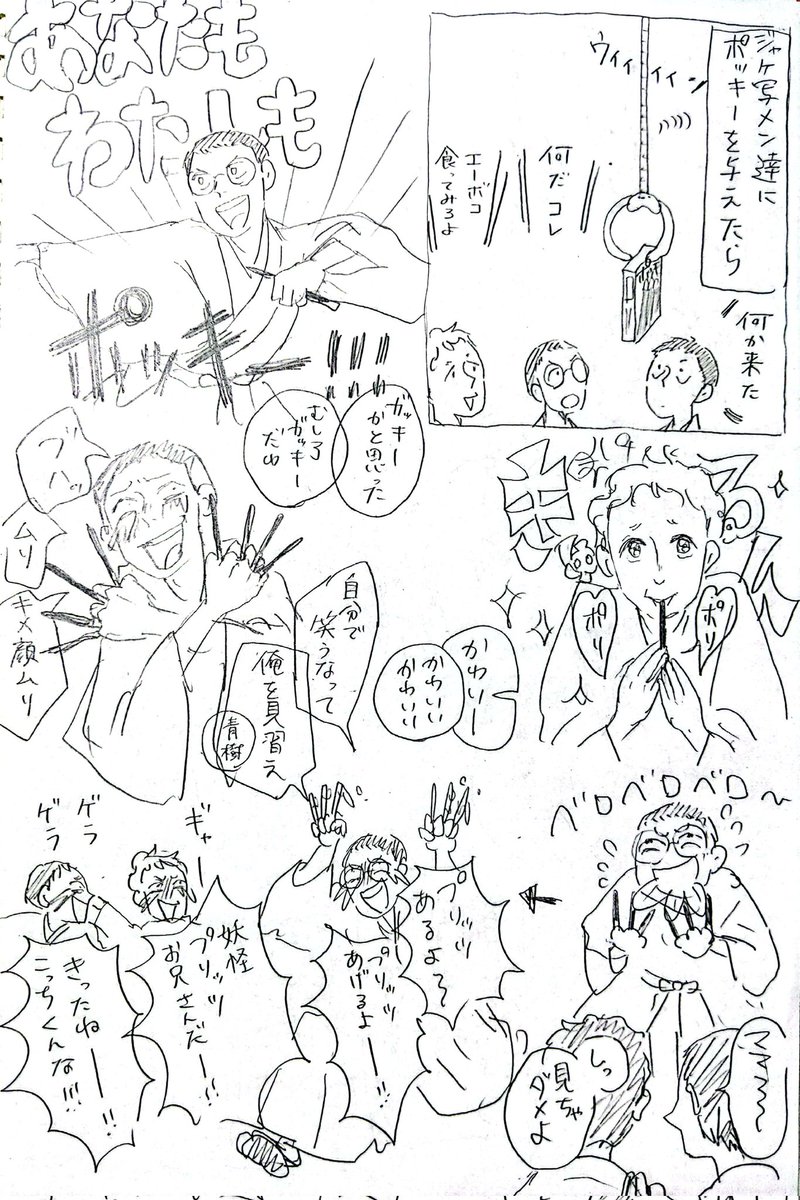 ジャケ写メン達に
ポッキーを与えたら
ウィィィィン
何か来た
何だコレ
エーボコ
食ってみろよ
あなたも
わたしも
ポッキー!!!
ガッキー
かと思った
むしろ
ガッキー
だわ
ポリ
ポリ
かわいー
かわいい
かわいい
ブハッ
ムリ
キメ顔ムリ
自分で
笑うなって
俺を見習え
青樹
ベロベロベロ〜
しっ
見ちゃ
ダメよ
ママ〜
プリッツ
あるよ〜
プリッツ
あげるよーー!!
ギャー
妖怪
プリッツ
お兄さんだー!!
ゲラ
ゲラ
きったねーー!!
こっちくんな!!!